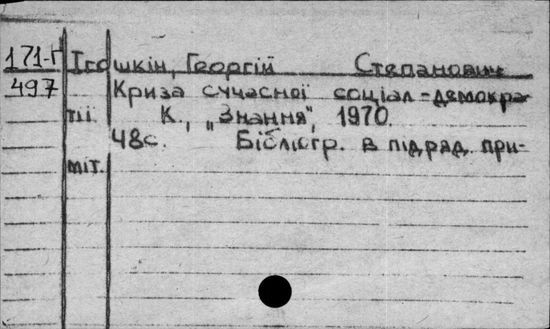 171-Г Ігошкін, Георгій Степанович
497 Криза сучасної соціал-демокра-
тії. К., „Знання", 1970.
48с. Бібліогр. в підряд. при-
міт.